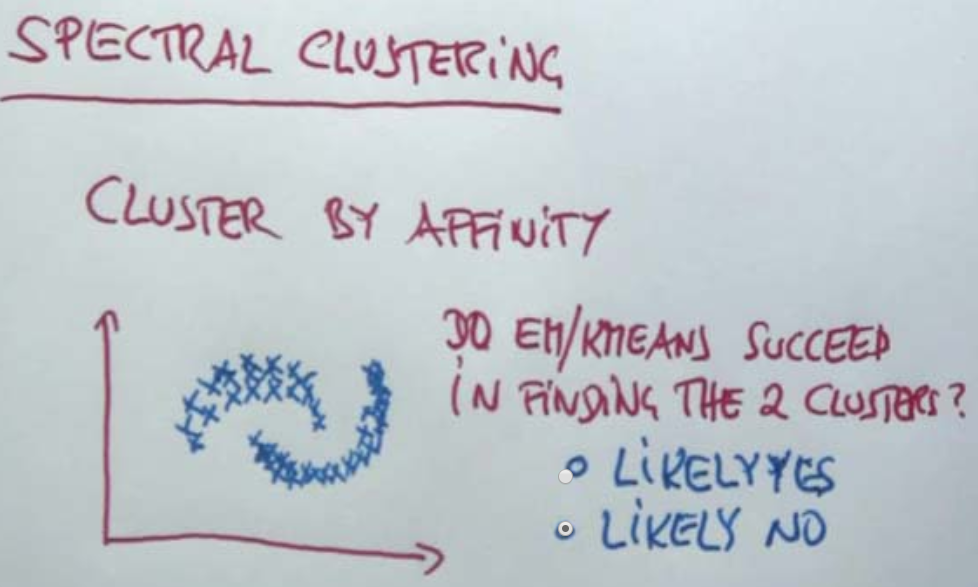 SPECTRAL CLUSTERING
CLUSTER BY AFFINITY
DO EM/KMEANS SUCCEED
IN FINDING THE 2 CLUSTERS?
LIKELY YES
LIKELY NO